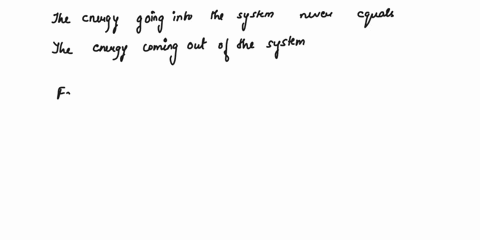 The energy going into the system never equals
The energy coming out of the system
F